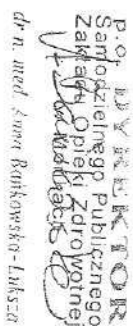 p.o. DYREKTOR
Samodzielnego Publicznego
Zakładu Opieki Zdrowotnej
dr n. med. Anna Bańkowska-Łuksza